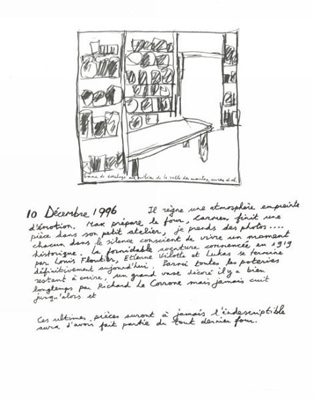 10 Décembre 1996 Il règne une atmosphère empreinte
d'émotion. Max prépare le four, Carmen finit une
pièce dans son petit atelier, je prends des photos....
chacun dans le silence conscient de vivre un moment
historique. La formidable aventure commencée en 1919
par Louis et Lukas se termine
définitivement aujourd'hui. Parmi toutes les poteries
restant à cuire, un grand vase décoré il y a bien
longtemps par Richard Le Corrone mais jamais cuit
jusqu'alors et
Ces ultimes pièces auront à jamais l'indescriptible
aura d'avoir fait partie du tout dernier four.